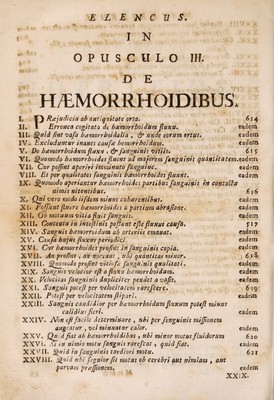 ELENCUS.
IN
OPUSCULO III.
DE
HÆMORRHOIDIBUS.
I. PRæjudicia ab antiquitate orta. 614
II. Erronea cogitata de hæmorrhoidum fluxu. eadem
III. Quid sint vasa hæmorrhoidalia, & unde eorum ortus. eadem
IV. Excluduntur inanes causæ hæmorrhoidum. eadem
V. De hæmorrhoidum fluxu, & sanguinis vitiis. 615
VI. Quomodo hæmorrhoides fluent ad majorem sanguinis quantitatem. eadem
VII. Cur possint aperiri imminuto sanguine. eadem
VIII. Et per qualitates sanguinis hæmorrhoides fluunt. eadem
IX. Quomodo aperiantur hæmorrhoides partibus sanguinis in contactu
nimis nitentibus. 616
X. Qui vero modo iisdem nimis cohærentibus. eadem
XI. Possunt fluere hæmorrhoides a partium abrasione. eadem
XII. Ob motuum vitia fluit sanguis. eadem
XIII. Contenta in intestinis possunt esse fluxus causa. 517
XIV. Sanguis hæmorrhoidum ab arteriis emanat. eadem
XV. Causa hujus fluxus periodici. eadem
XVI. Cur hæmorrhoides profint in sanguinis copia. eadem
XVII. An prosint, an noceant, ubi quantitas minor. 618
XVIII. Quomodo prosint vitiosæ sanguinis qualitati. eadem
XIX. Sanguis velocior est a fluxu hæmorrhoidum. eadem
XX. Velocitas sanguinis dupliciter pendet a vasis. eadem
XXI. Sanguis potest per velocitatem rarescere. 619
XXII. Potest per velocitatem stipari. eadem
XXIII. Sanguis candidior per hæmorrhoidum fluxum potest minus
calidus fieri. eadem
XXIV. Non est facile determinare, ubi per sanguinis missionem
augeatur, vel minuatur calor. eadem
XXV. Quid fiat ab hæmorrhoidibus, ubi minor motus fluidorum 620
XXVI. Si in nimio motu sanguis rarescat, quid fiat. eadem
XXVII. Quid in sanguinis tardiori motu. 621
XXVIII. Quid ubi segnior sit motus ob cerebri aut nimiam, aut
parvam pressionem. eadem
XXIX.